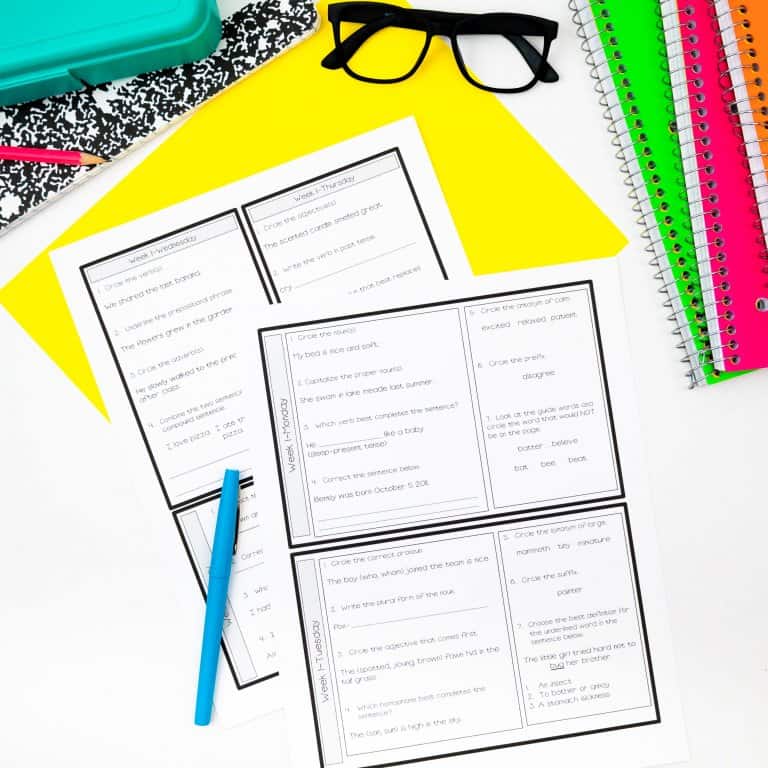 Week 1-Wednesday
1. Circle the verb(s).
We shared the last banana.
2. Underline the prepositional phrase
The flowers grew in the garden
3. Circle the adverb(s).
He slowly walked to the
after class.
4. Combine the two
compound sentence.
I love pizza. I ate
pizza.
Week 1-Thursday
1. Circle the adjective(s).
The scented candle smelled great.
2. Write the verb in past tense.
cry
that best replaces
Week 1-Monday
1. Circle the noun(s).
My bed is nice and soft.
2. Capitalize the proper noun(s).
She swam in lake meade last summer.
3. Which verb best completes the sentence?
He ______ like a baby.
(sleep-present tense)
4. Correct the sentence below.
Bensly was born October 5, 2011.
5. Circle the antonym of calm.
excited relaxed patient
6. Circle the prefix.
disagree
7. Look at the guide words and
circle the word that would NOT
be on the page.
batter believe
bat bee beat
Week 1-Tuesday
1. Circle the correct pronoun.
The boy (who, whom) joined the team is nice.
2. Write the plural form of the noun.
fox-
3. Circle the adjective that comes first.
The (spotted, young, brown) fawn hid in the
tall grass.
4. Which homophone best completes the
sentence?
The (son, sun) is high in the sky.
5. Circle the synonym of large.
mammoth tiny miniature
6. Circle the suffix.
painter
7. Choose the best definition for
the underlined word in the
sentence below.
The little girl tried hard not to
bug her brother.
1. An insect
2. To bother or annoy
3. A stomach sickness